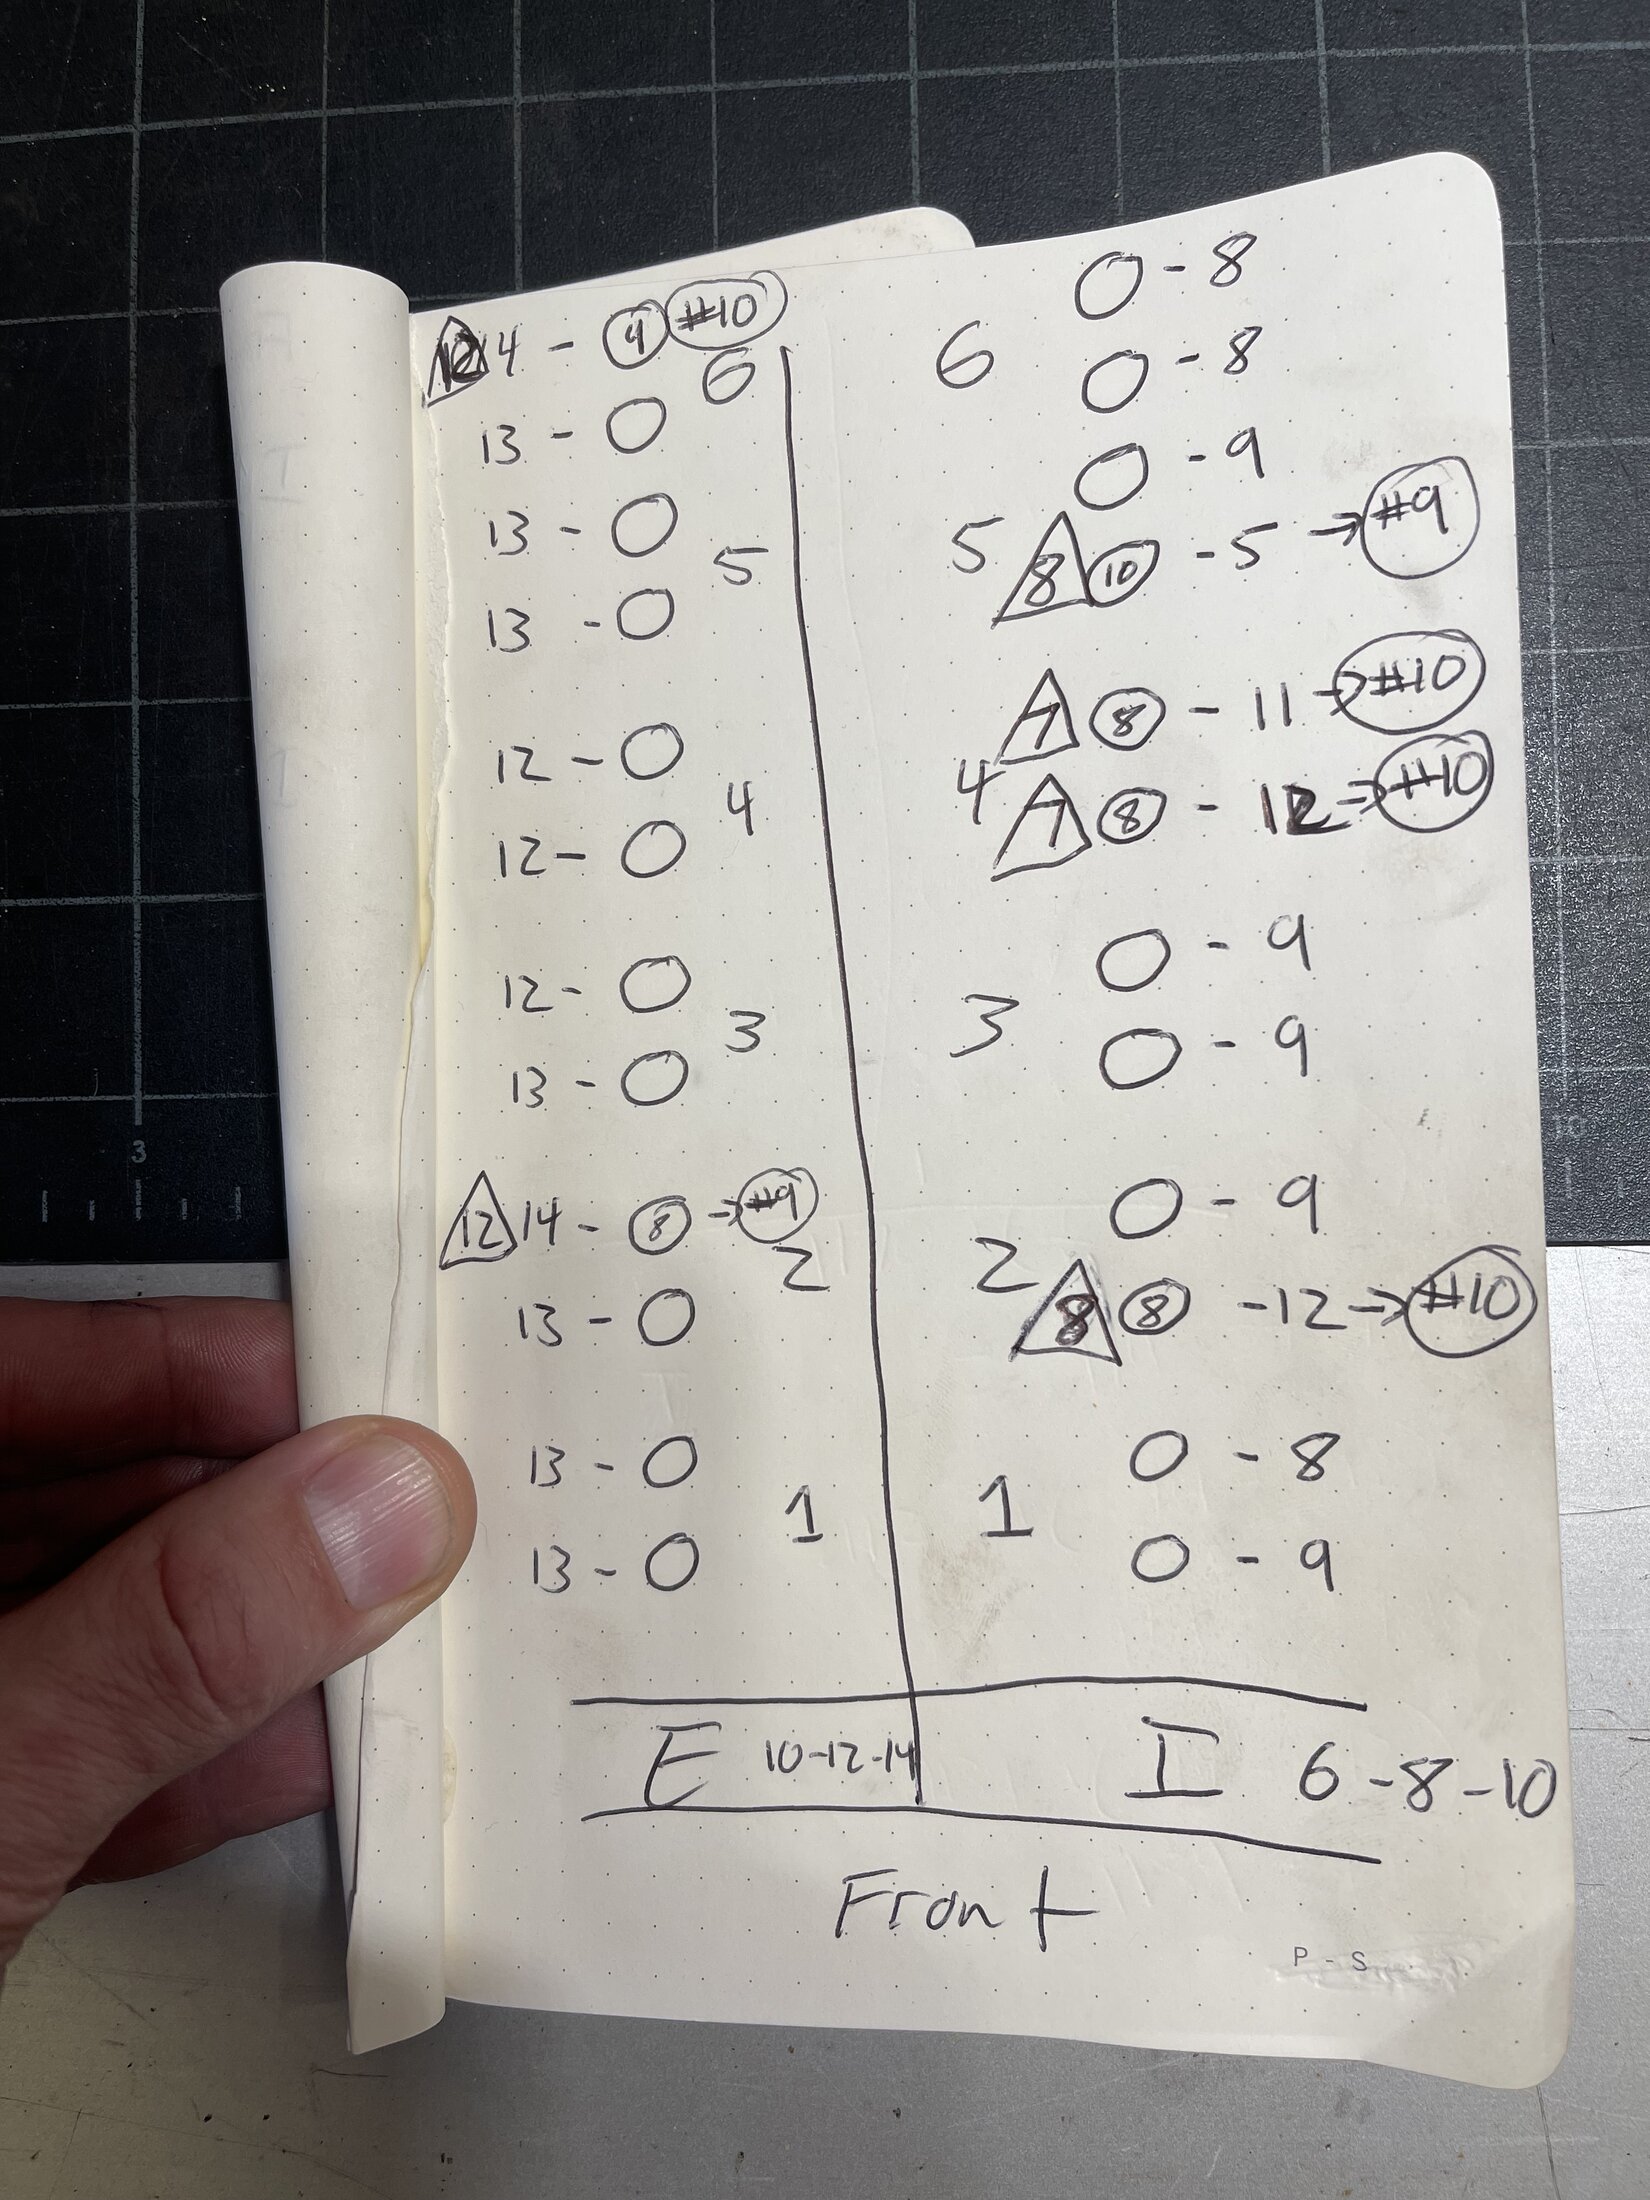 12 14 - 4 #10
6
13 - O
13 - O
5
13 - O
12 - O
4
12 - O
12 - O
3
13 - O
12 14 - 8 → #9
2
13 - O
13 - O
1
13 - O
O - 8
6
O - 8
O - 9
5 8 10 - 5 → #9
7 8 - 11 → #10
4
7 8 - 12 → #10
O - 9
3
O - 9
O - 9
2
8 8 - 12 → #10
O - 8
1
O - 9
E 10-12-14
I 6-8-10
Front
P - S
3